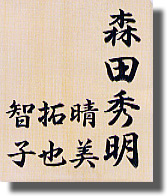 森田秀明
晴美
拓也
智子